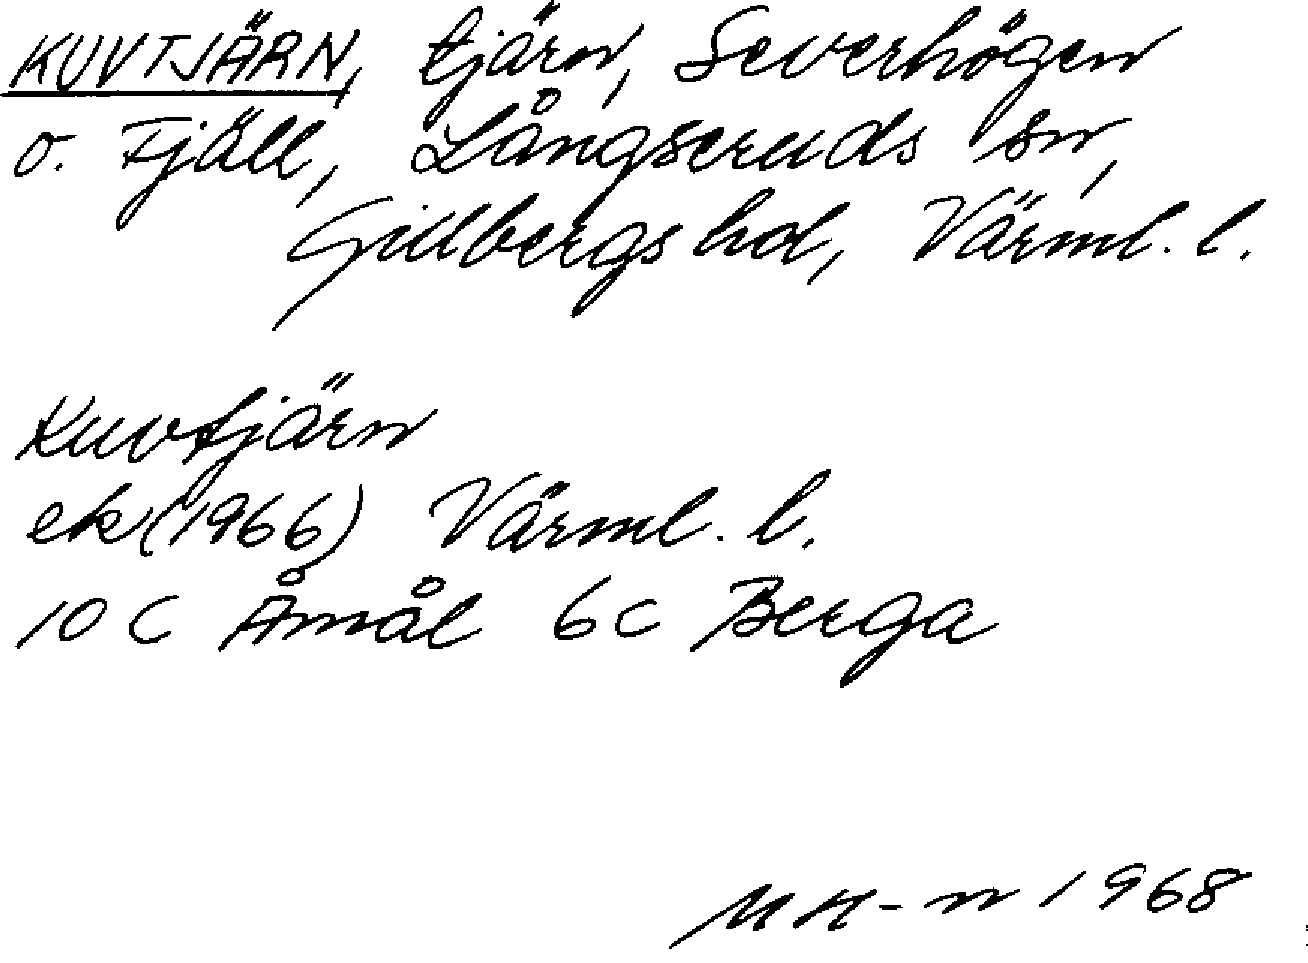 KUVTJÄRN, tjärn, Severhögen
o. Fjäll, Långseruds sn,
Gillbergs hd, Värml. l.
Kuvtjärn
ek (1966) Värml. l.
10 C Åmål 6c Berga
MH-n 1968